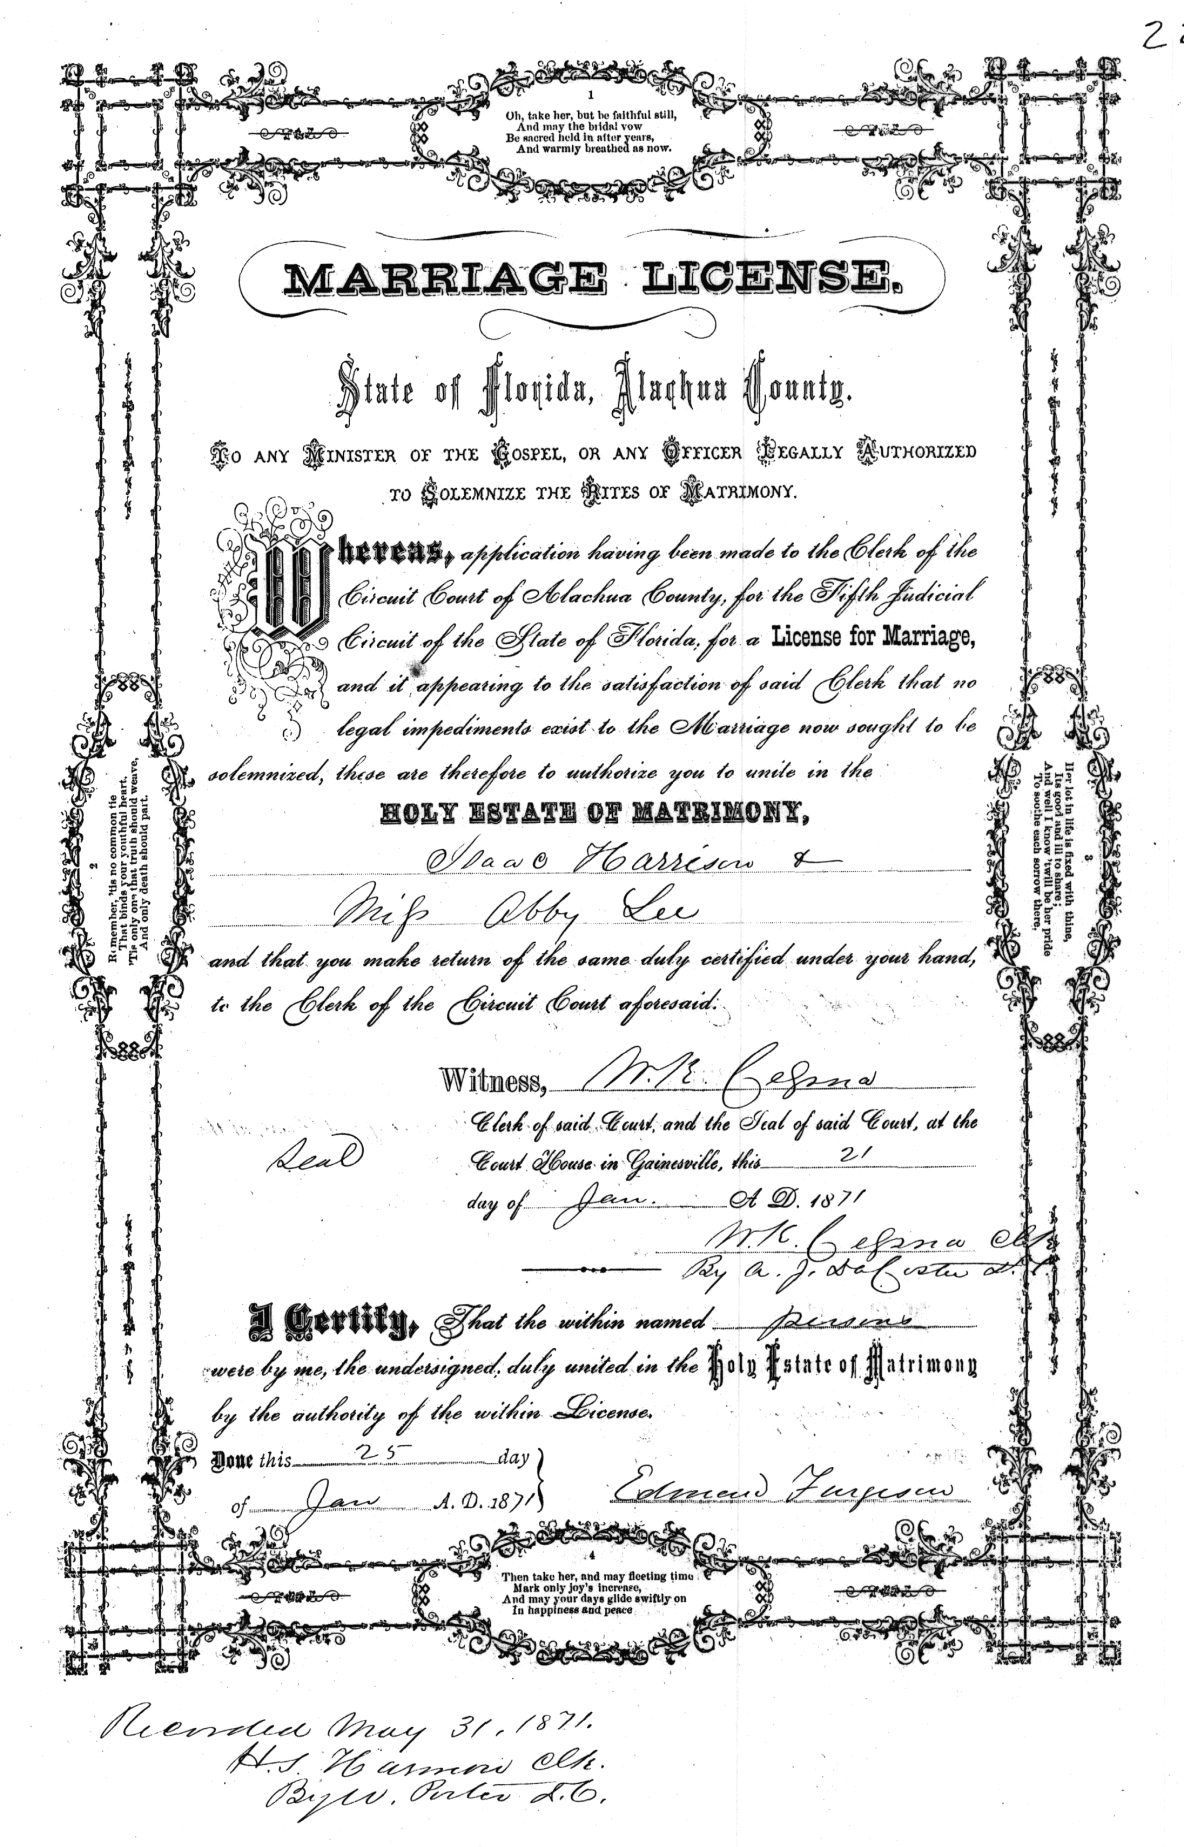 2
1
Oh, take her, but be faithful still,
And may the bridal vow
Be sacred held in after years,
And warmly breathed as now.
MARRIAGE LICENSE.
State of Florida, Alachua County.
TO ANY MINISTER OF THE GOSPEL, OR ANY OFFICER LEGALLY AUTHORIZED
TO SOLEMNIZE THE RITES OF MATRIMONY.
Whereas, application having been made to the Clerk of the
Circuit Court of Alachua County, for the Fifth Judicial
Circuit of the State of Florida, for a License for Marriage,
and it appearing to the satisfaction of said Clerk that no
legal impediments exist to the Marriage now sought to be
solemnized, these are therefore to authorize you to unite in the
HOLY ESTATE OF MATRIMONY,
Isaac Harrison &
Miss Abby Lee
and that you make return of the same duly certified under your hand,
to the Clerk of the Circuit Court aforesaid.
2
Remember, 'tis no common tie
That binds your youthful heart,
'Tis only one that truth should weave,
And only death should part.
3
Her lot in life is fixed with thine,
Its good and ill to share;
And well I know 'twill be her pride
To soothe each sorrow there,
Witness, W. K. Cessna
Clerk of said Court, and the Seal of said Court, at the
Seal
Court House in Gainesville, this 21
day of Jan. A D. 1871
W. K. Cessna Clk
By A. J. DaCosta D. C.
I Certify, That the within named persons
were by me, the undersigned, duly united in the Holy Estate of Matrimony
by the authority of the within License.
Done this 25 day
of Jan A. D. 1871
Edmund Furgison
4
Then take her, and may fleeting time
Mark only joy's increase,
And may your days glide swiftly on
In happiness and peace
Recorded May 31, 1871.
H. S. Harmon Clk.
By W. Porter D. C.